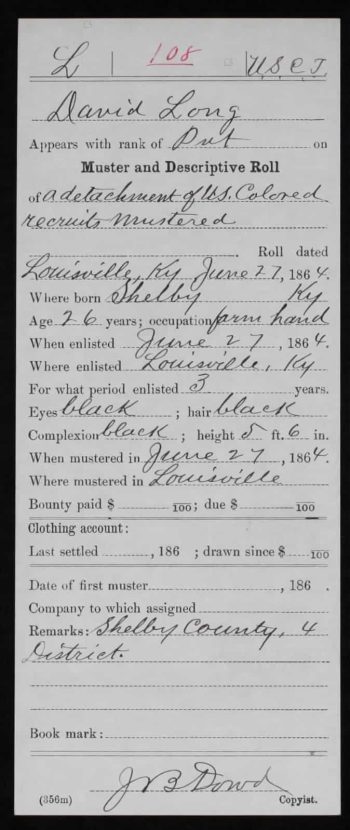 L | 108 | U.S.C.T.
David Long
Appears with rank of Pvt on
Muster and Descriptive Roll
of a detachment of U.S. Colored
recruits mustered
Roll dated
Louisville, Ky June 27, 1864.
Where born Shelby Ky
Age 26 years; occupation farm hand
When enlisted June 27, 1864.
Where enlisted Louisville, Ky
For what period enlisted 3 years.
Eyes black ; hair black
Complexion black ; height 5 ft. 6 in.
When mustered in June 27, 1864.
Where mustered in Louisville
Bounty paid $ 100; due $ 100
Clothing account:
Last settled , 186 ; drawn since $ 100
Date of first muster , 186 .
Company to which assigned
Remarks: Shelby County, 4
District.
Book mark:
J B Dowd
(356m) Copyist.